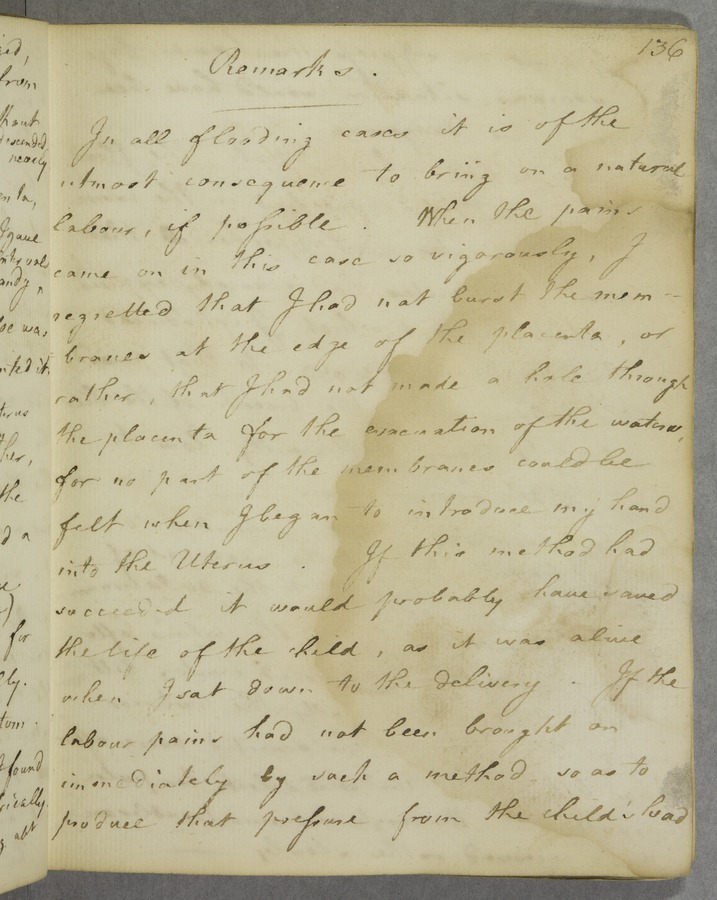 136
Remarks.
In all flooding cases it is of the
utmost consequence to bring on a natural
labour, if possible. When the pains
came on in this case so vigorously, I
regretted that I had not burst the mem-
branes at the edge of the placenta, or
rather, that I had not made a hole through
the placenta for the evacuation of the waters,
for no part of the membranes could be
felt when I began to introduce my hand
into the Uterus. If this method had
succeeded it would probably have saved
the life of the child, as it was alive
when I sat down to the delivery. If the
labour pains had not been brought on
immediately by such a method so as to
produce that pressure from the child's head